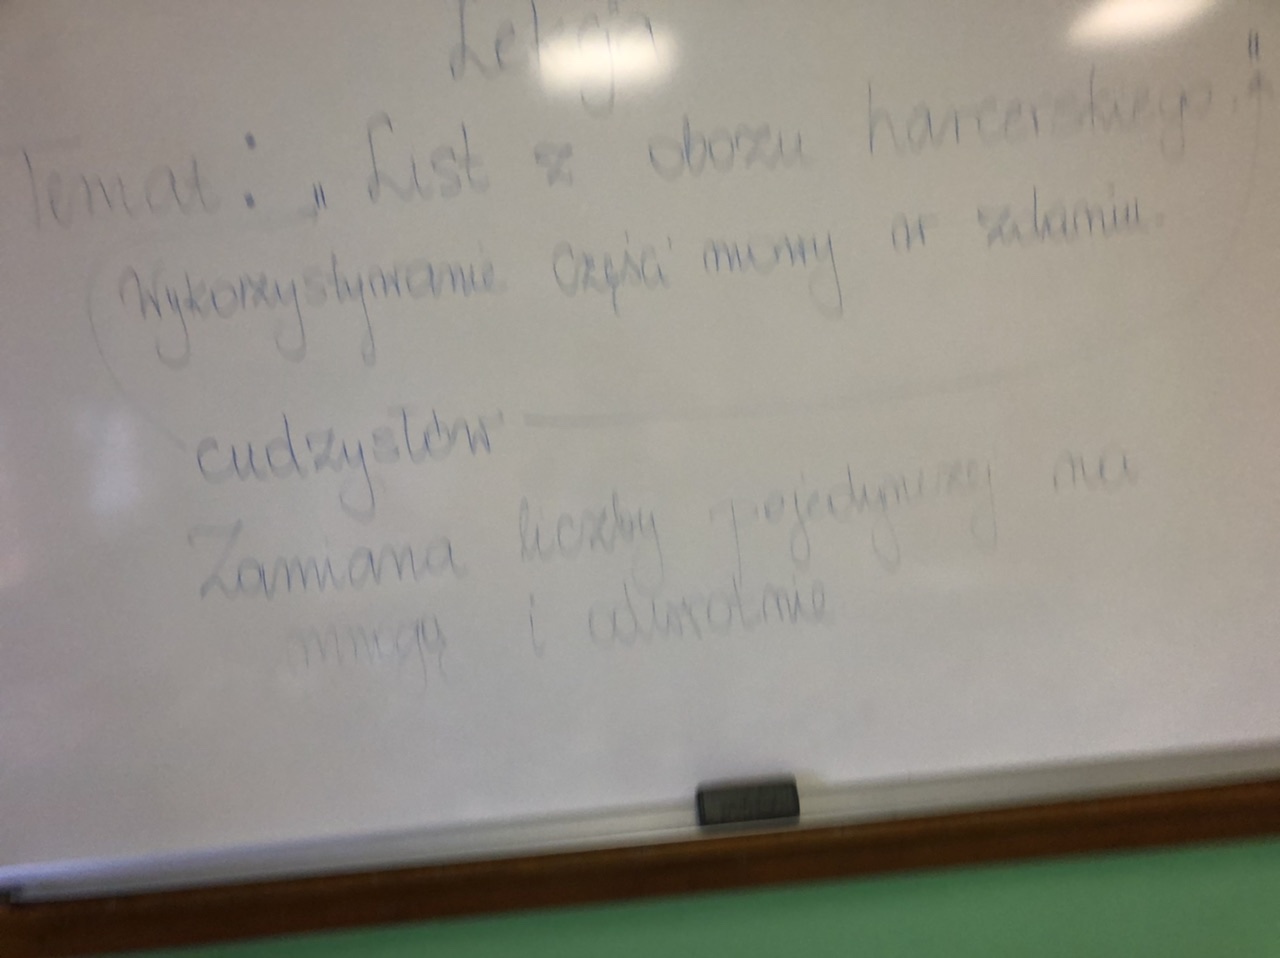 Lekcja
Temat: „List z obozu harcerskiego."
Wykorzystywanie części mowy w zdaniu.
cudzysłów
Zamiana liczby pojedynczej na
mnogą i odwrotnie